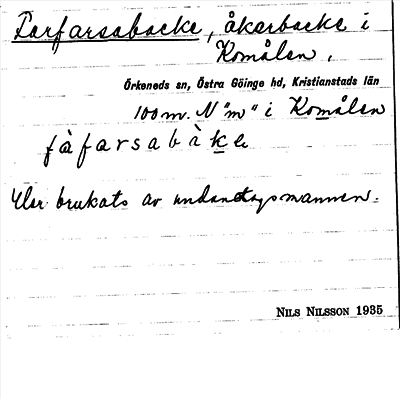 Farfarsabacke, åkerbacke i
Komålen,
Örkeneds sn, Östra Göinge hd, Kristianstads län
100 m. N "m" i Komålen
fàfarsabàke
Har brukats av undantagsmannen.
NILS NILSSON 1935